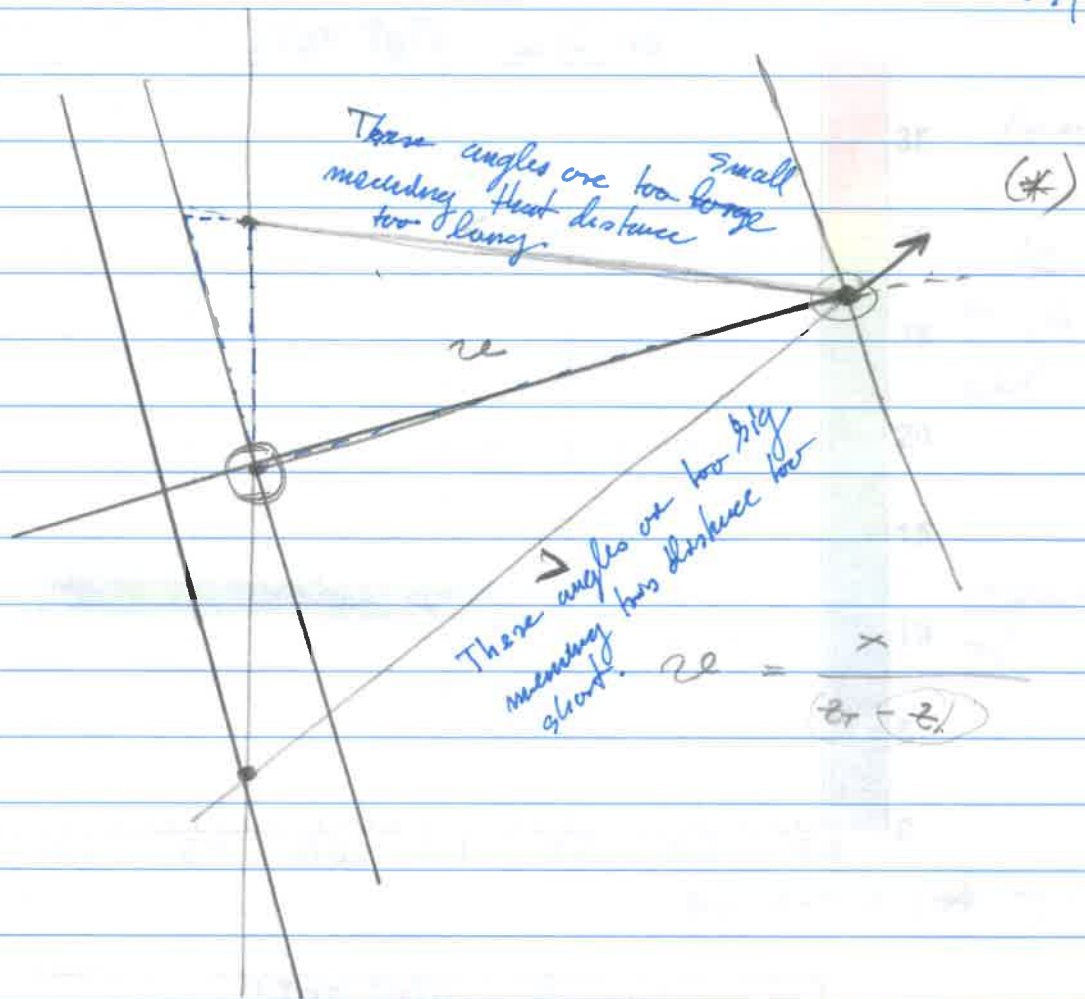 (*)
These angles are too large small
meaning that distance
too long.
These angles are too big
meaning this distance too
short.
= x